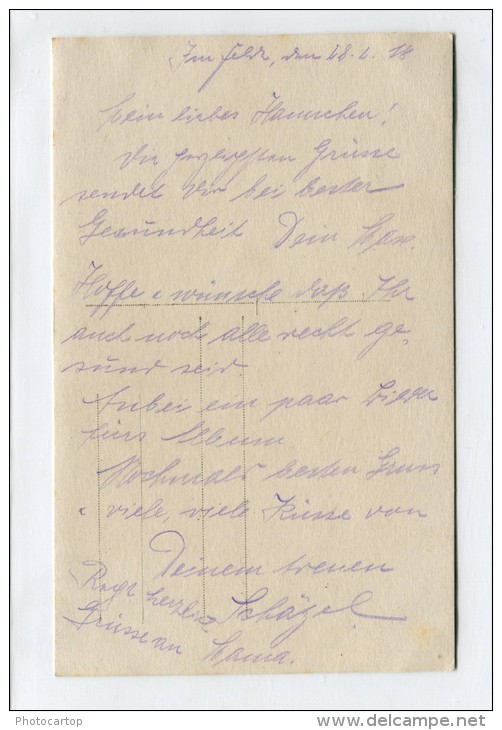 Im Felde, den 28. 6. 18
Mein liebes Hannchen!
Die herzlichsten Grüsse
sendet Dir bei bester
Gesundheit Dein Max.
Hoffe & wünsche daß Ihr
auch noch alle recht ge-
sund seid
Anbei ein paar Bilder
fürs Album
Nochmals besten Gruss
& viele, viele Küsse von
Deinem treuen
Schätzel
Recht herzliche
Grüsse an Mama.
Photocartop
www.delcampe.net